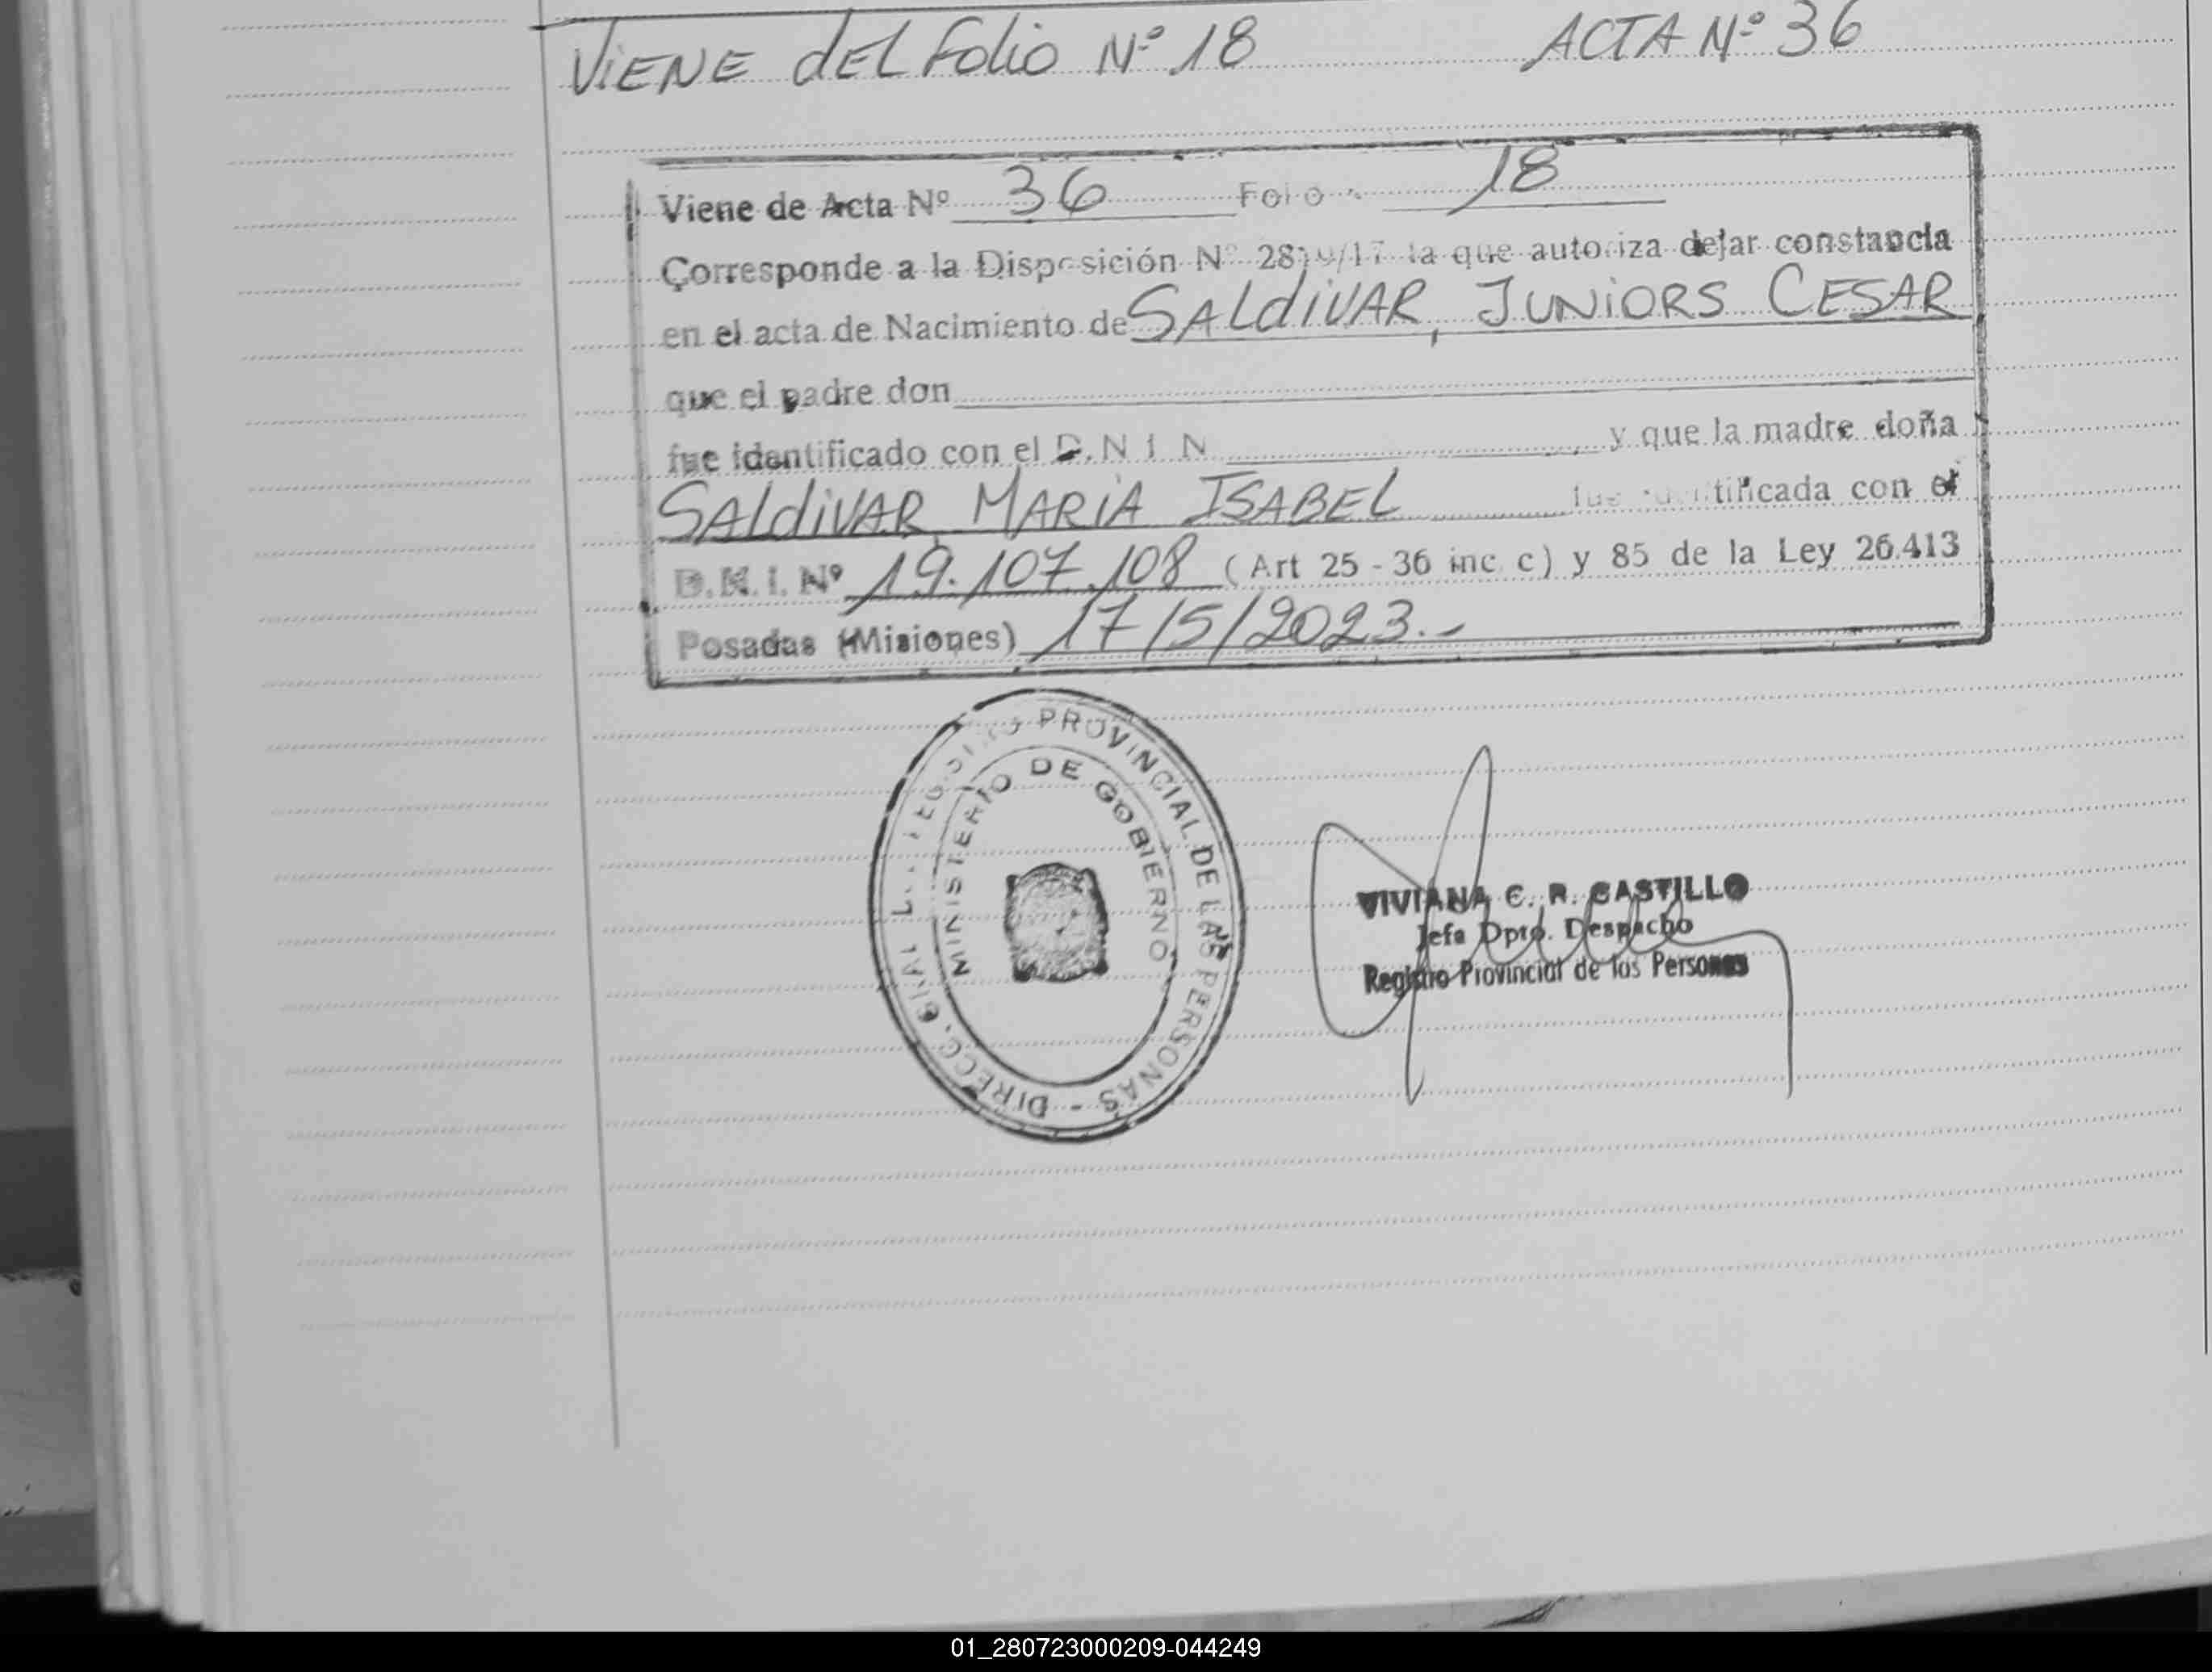 VIENE dEL FOLIO Nº 18 ACTA Nº 36
Viene de Acta Nº 36 Folio 18
Corresponde a la Disposición Nº la que autoriza dejar constancia
en el acta de Nacimiento de SALdIVAR, JUNIORS CESAR
que el padre don
fue identificado con el D.N.I N , y que la madre doña
SALdIVAR, MARIA ISABEL fue identificada con el
D.N.I. Nº 19.107.108 (Art 25 - 36 inc. c) y 85 de la Ley 26.413
Posadas (Misiones) 17/5/2023.-
PROVINCIAL DE LAS PERSONAS - DIRECC.
MINISTERIO DE GOBIERNO
VIVIANA C. R. CASTILLO
Jefa Dpto. Despacho
Registro Provincial de las Personas
01_280723000209-044249